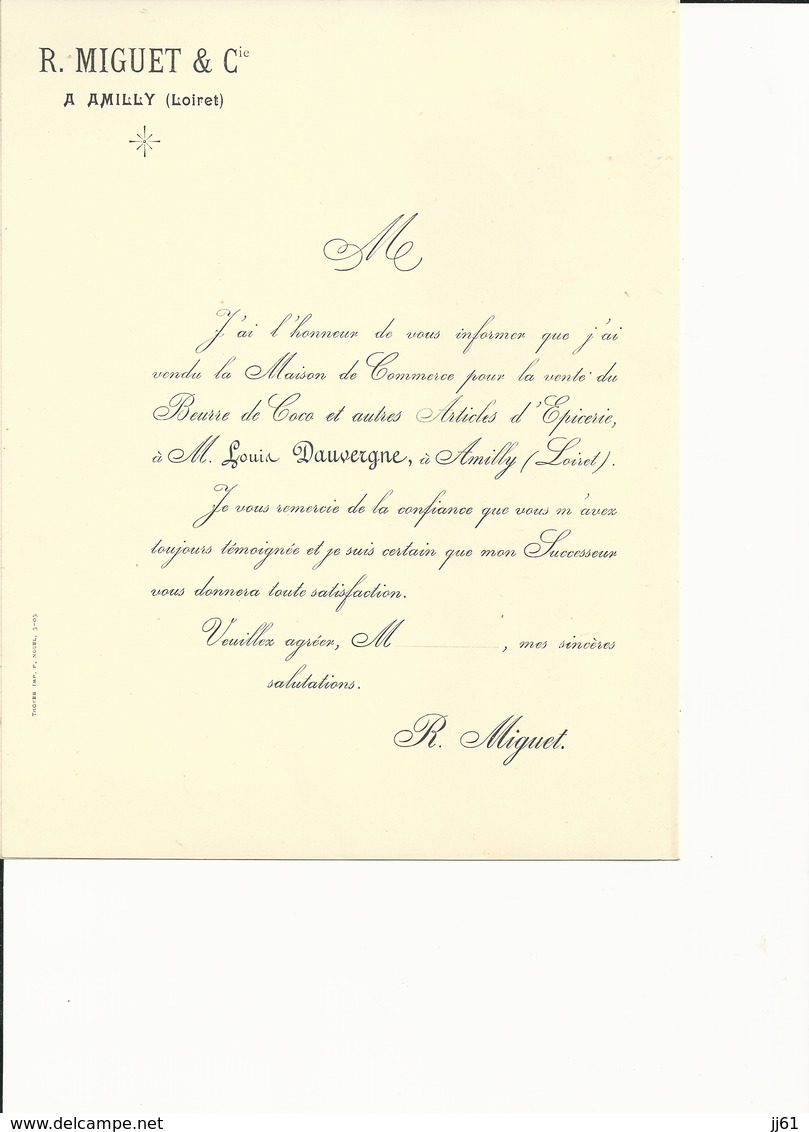 R. MIGUET & Cie
A AMILLY (Loiret)
M
J'ai l'honneur de vous informer que j'ai
vendu la Maison de Commerce pour la vente du
Beurre de Coco et autres Articles d'Epicerie,
à M. Louis Dauvergne, à Amilly (Loiret).
Je vous remercie de la confiance que vous m'avez
toujours témoignée et je suis certain que mon Successeur
vous donnera toute satisfaction.
Veuillez agréer, M , mes sincères
salutations.
R. Miguet.
TROYES IMP. P. NOUEL, 3-03
www.delcampe.net
jj61